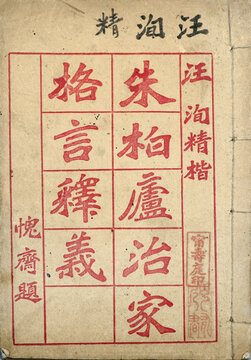 汪洵精
汪洵精楷
朱柏廬治家
格言釋義
愧齋題